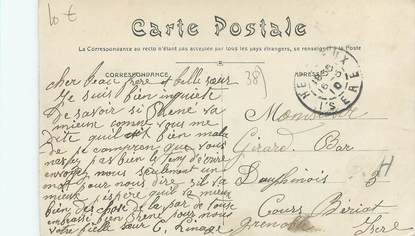 10 €
Carte Postale
La Correspondance au recto n'étant pas acceptée par tous les pays étrangers, se renseigner à la Poste
CORRESPONDANCE
ADRESSE
38
ISERE
cher beau frere et belle sœur
Je suis bien inquiette
De savoir si René va
mieux comme vous me
dite quil est bien mal
je comprend que vous
navez pas bien le temp d'ecrir
envoyez nous seulement un
mot pour nous dire sil va
mieux j'espere quil va mieux
bien des chose de la par de tous
embrasse bien René pour nous
votre belle sœur
Monsieur
Girard Bar
Dauphinois
Cours Bériat
Grenoble
Isere